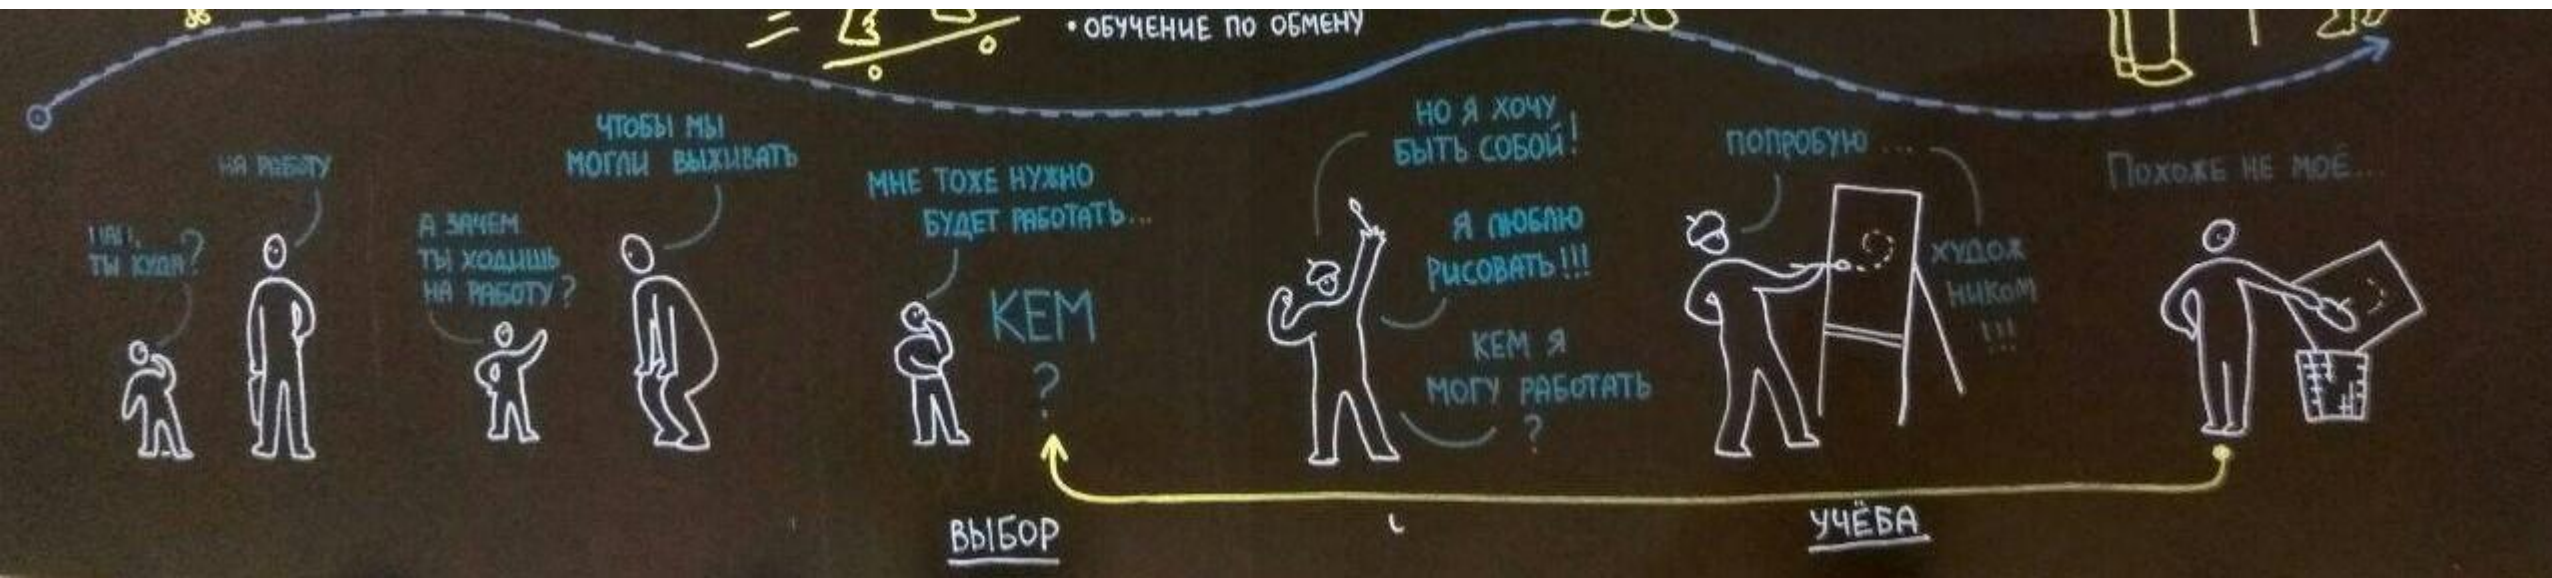 • ОБУЧЕНИЕ ПО ОБМЕНУ
ПАП,
ТЫ КУДА?
НА РАБОТУ
А ЗАЧЕМ
ТЫ ХОДИШЬ
НА РАБОТУ?
ЧТОБЫ МЫ
МОГЛИ ВЫЖИВАТЬ
МНЕ ТОЖЕ НУЖНО
БУДЕТ РАБОТАТЬ...
КЕМ
?
НО Я ХОЧУ
БЫТЬ СОБОЙ!
Я ЛЮБЛЮ
РИСОВАТЬ!!!
КЕМ Я
МОГУ РАБОТАТЬ
?
ПОПРОБУЮ ...
ХУДОЖ
НИКОМ
!!!
ПОХОЖЕ НЕ МОЁ...
ВЫБОР
УЧЁБА